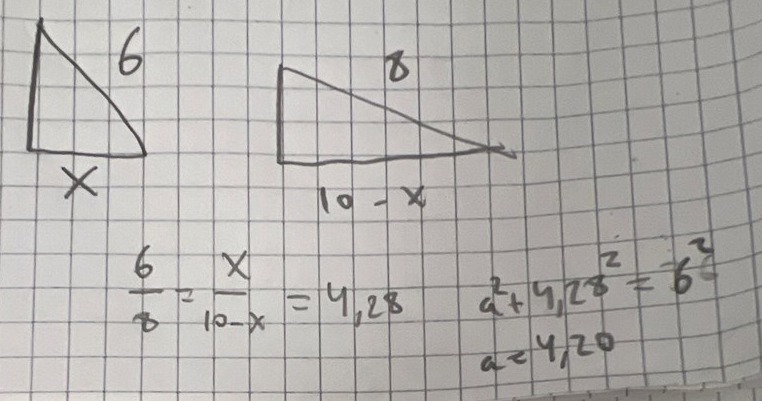 6
8
x
10 - x
6/8 = x/10-x = 4,28
a² + 4,28² = 6²
a = 4,20